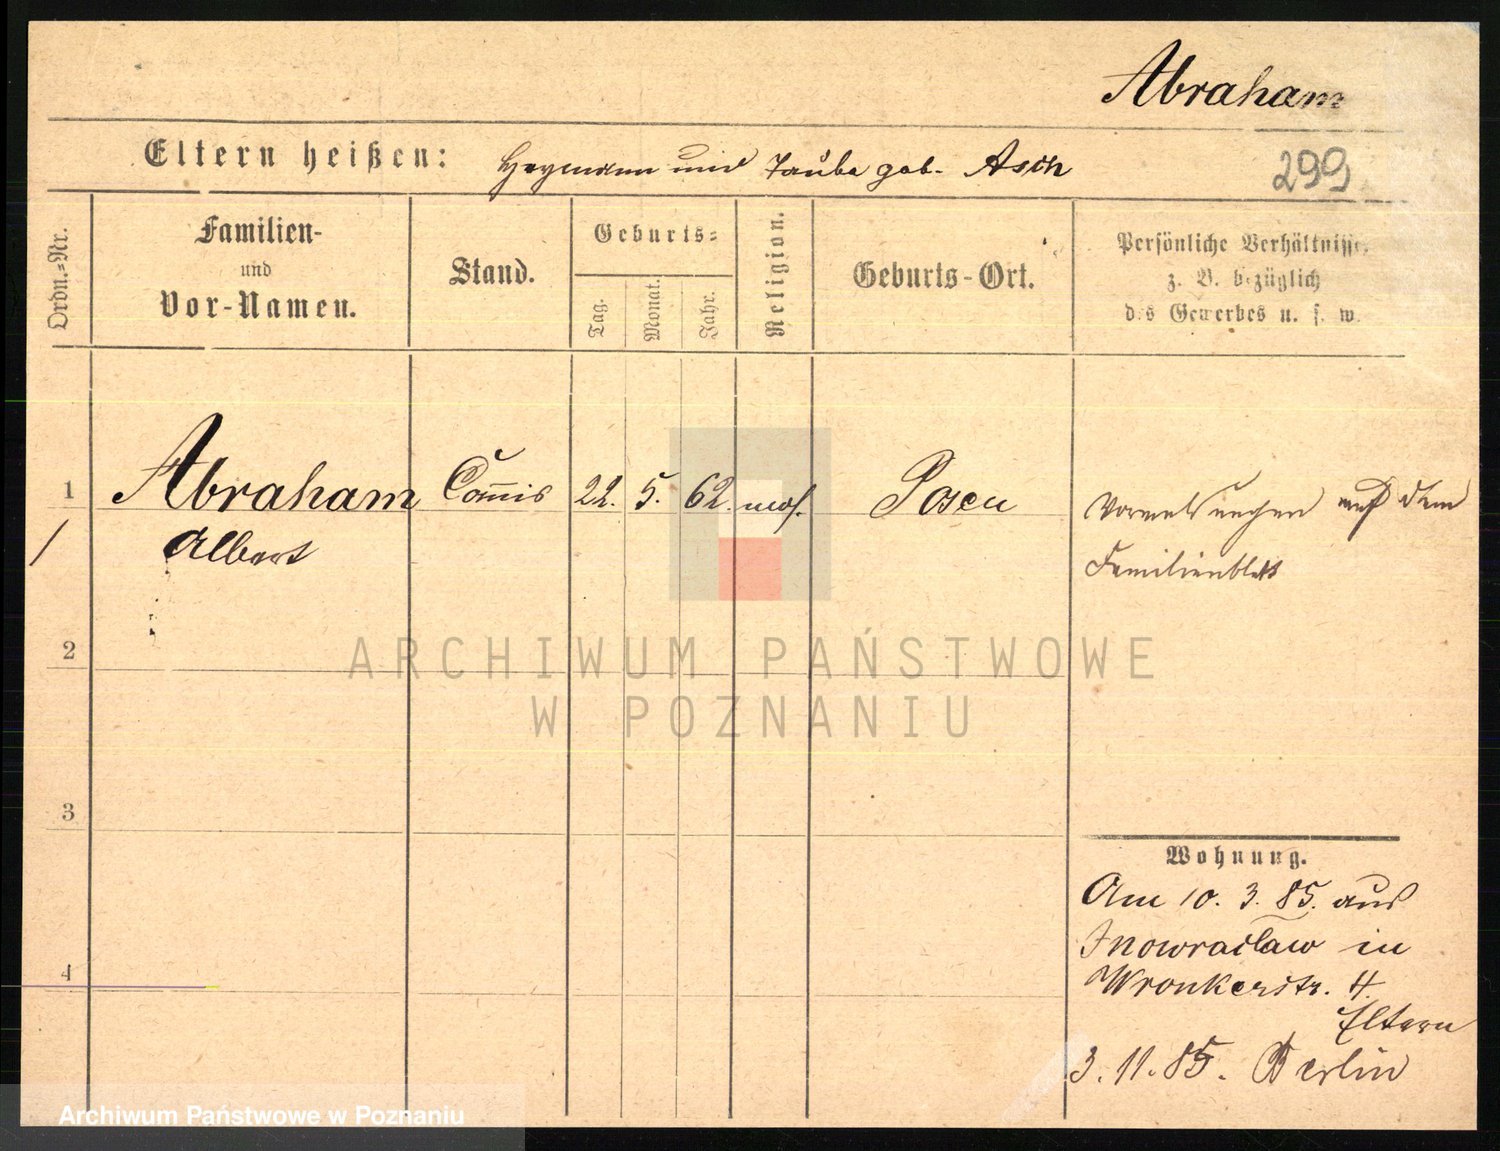 Abraham
Eltern heißen: Heymann und Taube geb. Asch
299
Ordn.=Nr.
Familien-
und
Vor-Namen.
Stand.
Geburts=
Tag.
Monat.
Jahr.
Religion.
Geburts-Ort.
Persönliche Verhältnisse,
z. B. bezüglich
des Gewerbes u. s. w.
1 Abraham Com̄is 22. 5. 62. mos. Posen
Albert
Vormeldungen auf dem
Familienblatt
2
ARCHIWUM PAŃSTWOWE
W POZNANIU
3
Wohnung.
Am 10. 3. 85. aus
Inowraclaw in
Wronkerstr. 4.
Eltern
4
3. 11. 85. Berlin
Archiwum Państwowe w Poznaniu